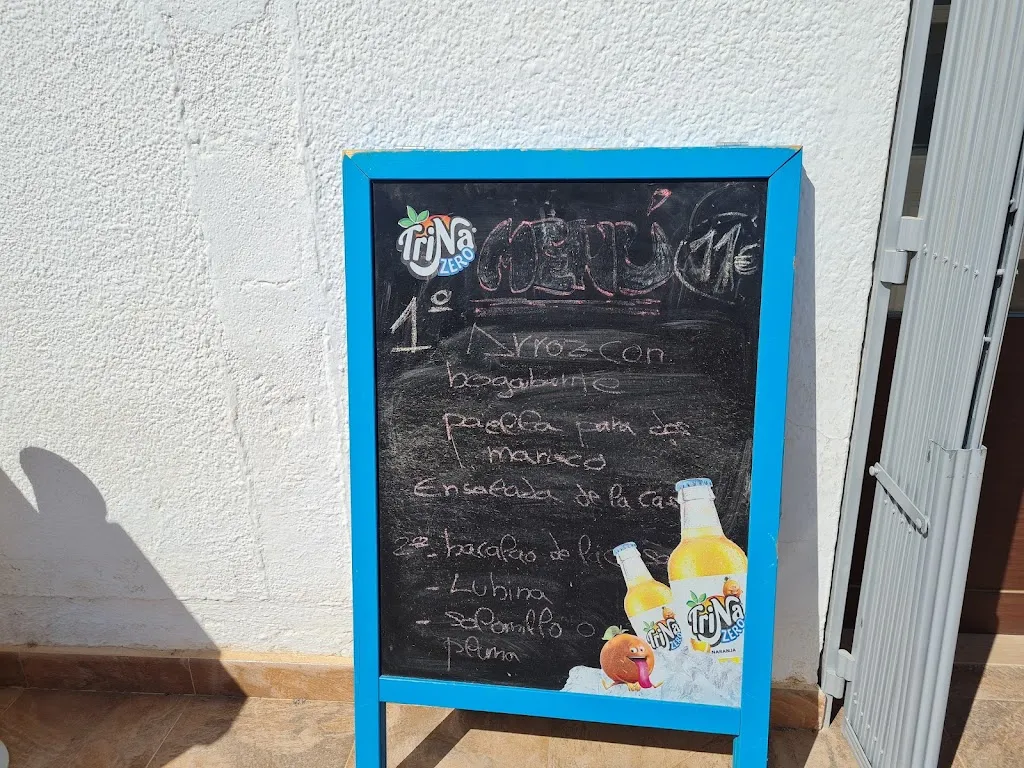 TriNa ZERO
MENÚ 11€
1º Arroz con
bogabante
paella para dos
marisco
Ensalada de la casa
2º - bacalao de
- Lubina
- solomillo o
pluma
TriNa ZERO
TriNa ZERO
NARANJA